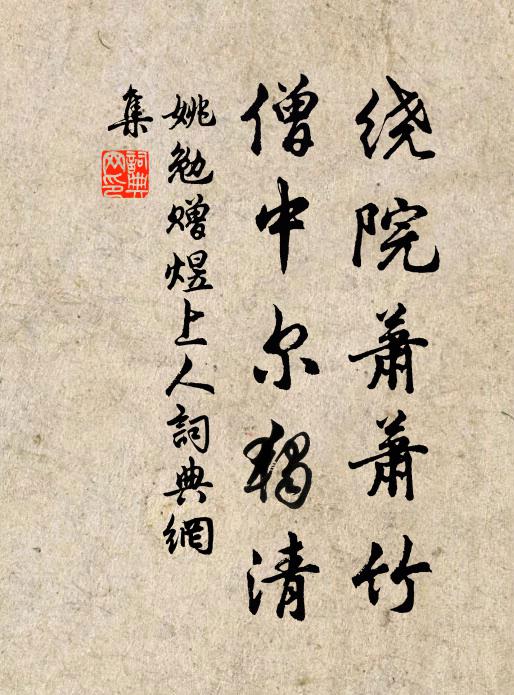 绕院萧萧竹
僧中尔独清
姚勉赠煜上人詞典網
集
詞典
网印